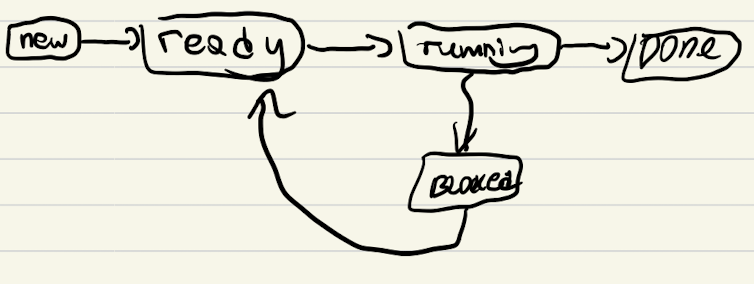 new ready running DONE
BLOCKED